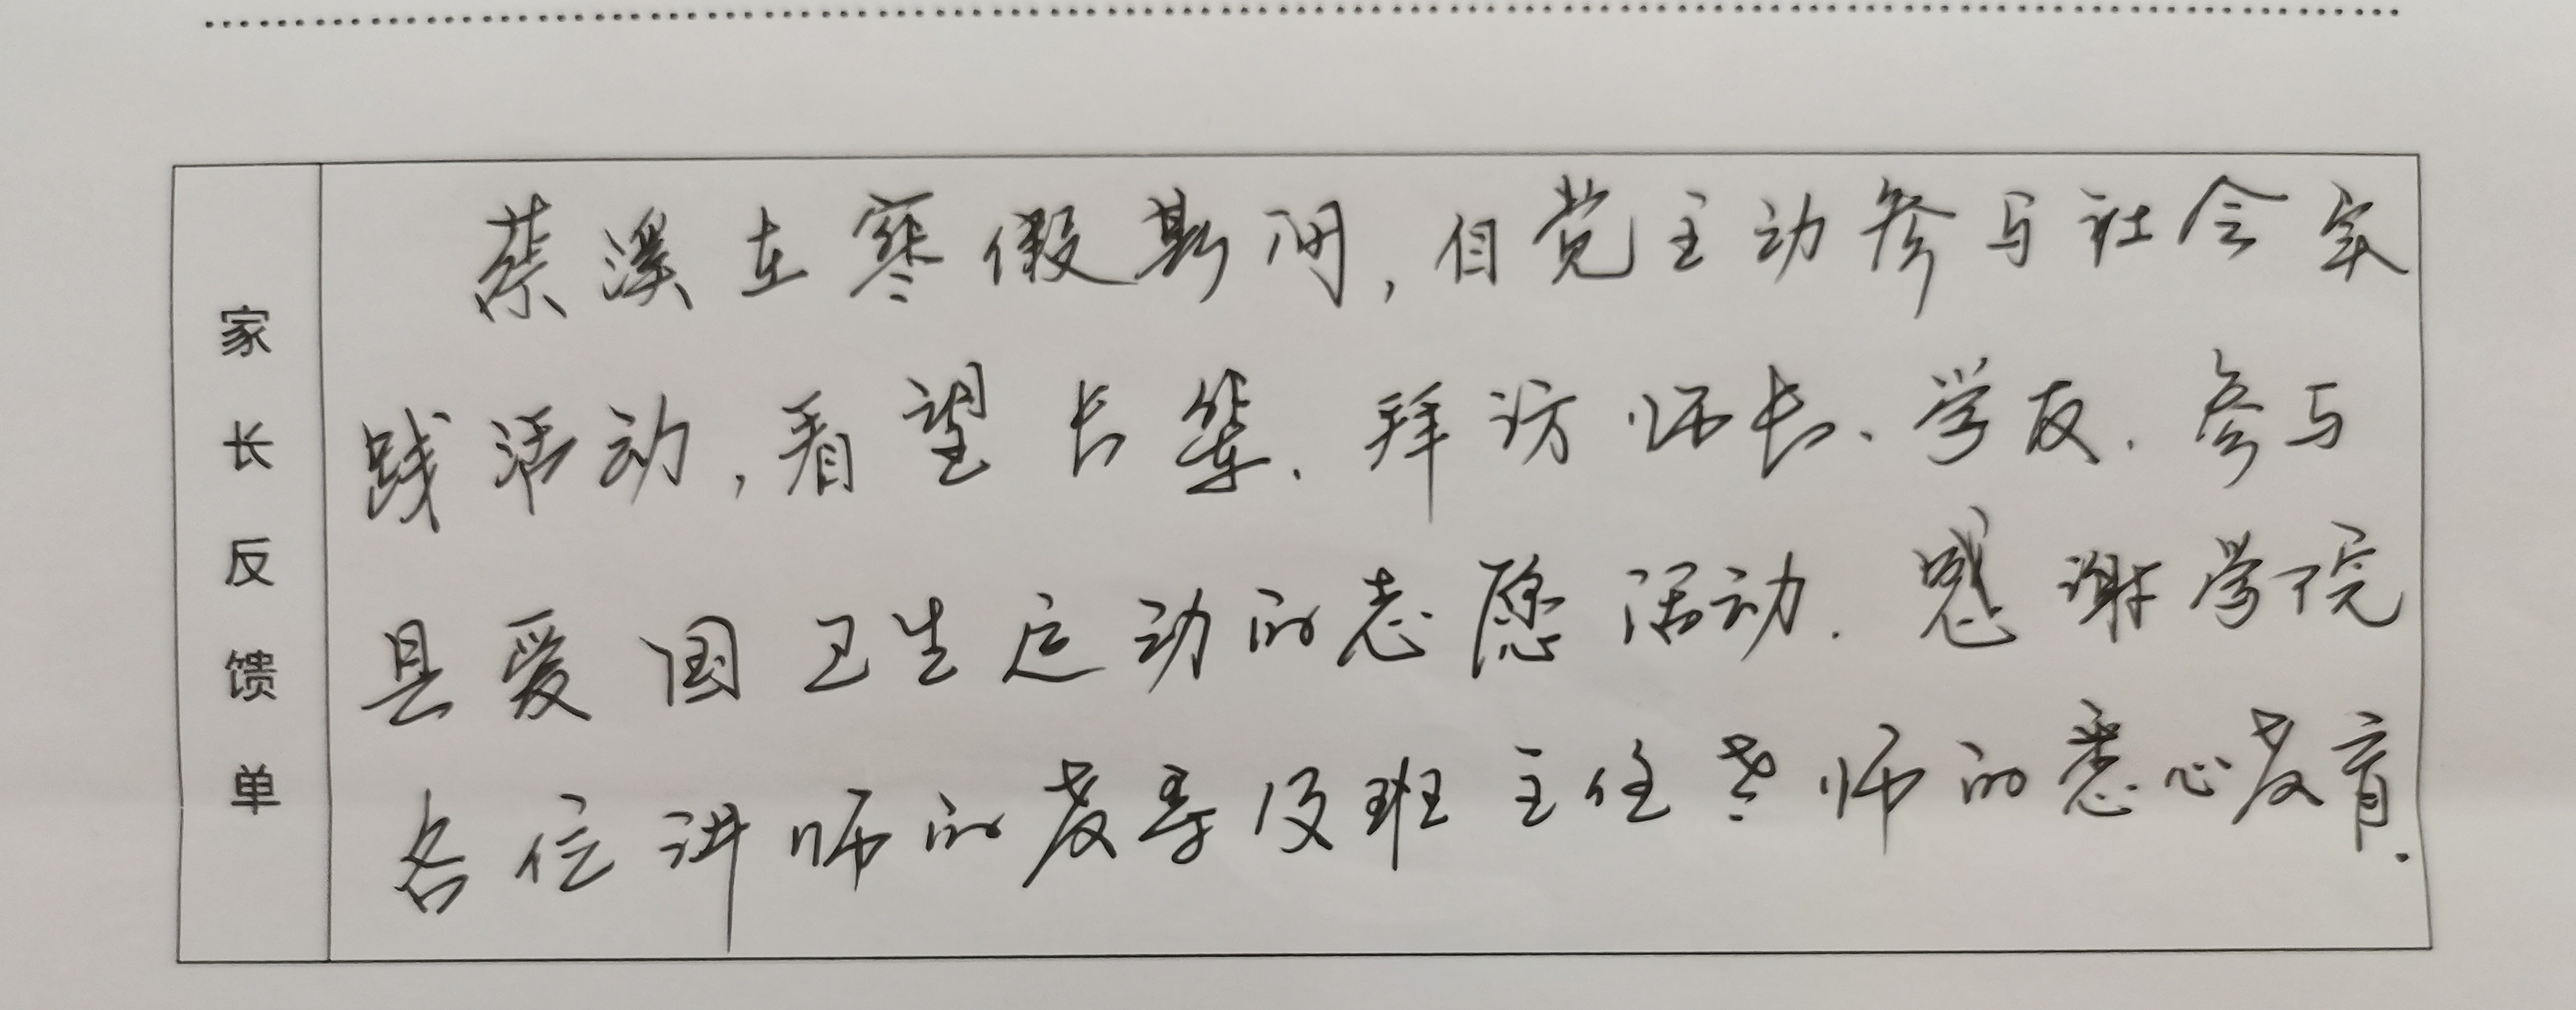 家长反馈单
蔡溪在寒假期间，自觉主动参与社会实
践活动，看望长辈、拜访师长、学友，参与
县爱国卫生运动的志愿活动。感谢学院
各位讲师的教导及班主任老师的悉心教育。